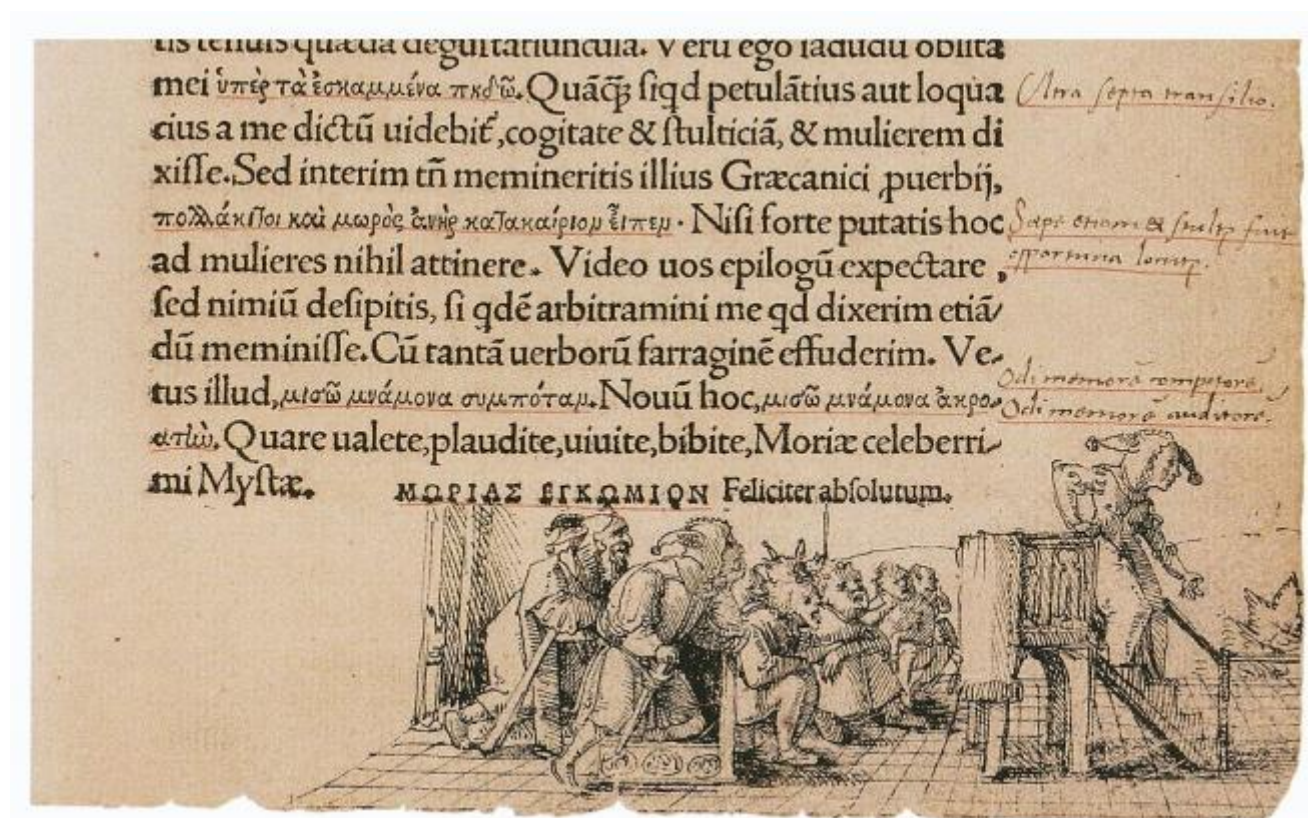 tis tenuis quædã degustatiuncula. Verũ ego iãdudũ oblita
mei ὑπὲρ τὰ ἐσκαμμένα πηδῶ. Quãq̃ꝫ siqd petulãtius aut loqua
cius a me dictũ uidebit᷑, cogitate & stulticiã, & mulierem di
xisse. Sed interim tñ memineritis illius Græcanici ꝓuerbij,
πολλάκι τοι καὶ μωρὸς ἀνὴρ κατακαίριον εἶπεν. Nisi forte putatis hoc
ad mulieres nihil attinere. Video uos epilogũ expectare,
sed nimiũ desipitis, si qdẽ arbitramini me qd dixerim etiã/
dũ meminisse. Cũ tantã uerborũ farraginẽ effuderim. Ve-
tus illud, μισῶ μνάμονα συμπόταν. Nouũ hoc, μισῶ μνάμονα ἀκρο-
ατὴν. Quare ualete, plaudite, uiuite, bibite, Moriæ celeberri-
mi Mystæ.
ΜΩΡΙΑΣ ΕΓΚΩΜΙΟΝ Feliciter absolutum.
Ultra septa transilio.
Sæpe etiam & stultus fuit
opportuna locutus.
Odi memorẽ compotorẽ.
Odi memorẽ auditorẽ.